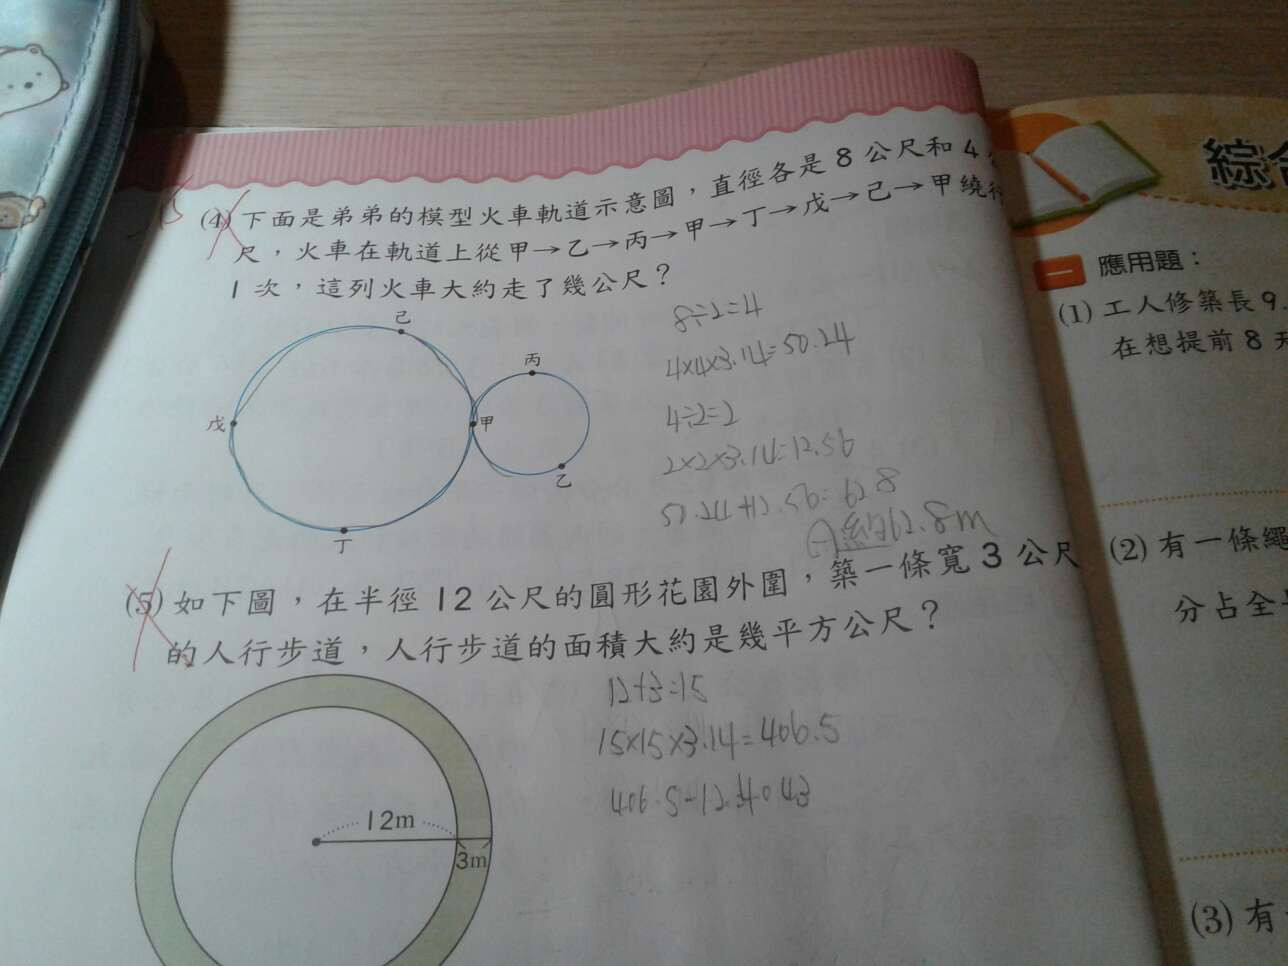 (4) 下面是弟弟的模型火車軌道示意圖，直徑各是 8 公尺和 4
尺，火車在軌道上從甲→乙→丙→甲→丁→戊→己→甲繞行
1 次，這列火車大約走了幾公尺？
己
丙
戊
甲
乙
丁
8÷2=4
4×4×3.14=50.24
4÷2=2
2×2×3.14=12.56
50.24+12.56=62.8
約62.8m
(5) 如下圖，在半徑 12 公尺的圓形花園外圍，築一條寬 3 公尺
的人行步道，人行步道的面積大約是幾平方公尺？
12+3=15
15×15×3.14=406.5
406.5-12
12m
3m
綜合
一 應用題：
(1) 工人修築長 9.
在想提前 8 天
(2) 有一條繩
分占全
(3) 有